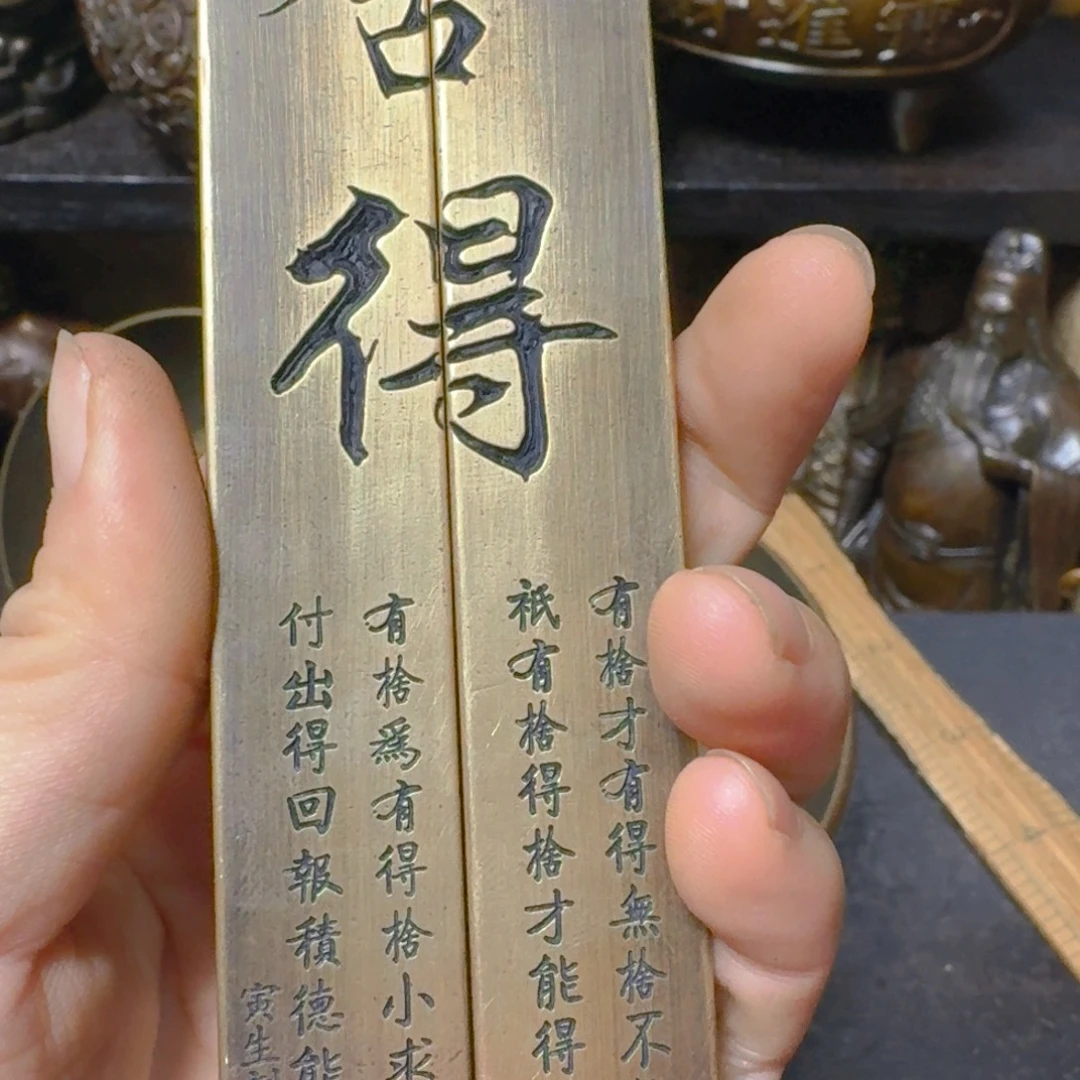 得
有捨才有得無捨不
祇有捨得捨才能得
有捨為有得捨小求
付出得回報積德能
寅生
進